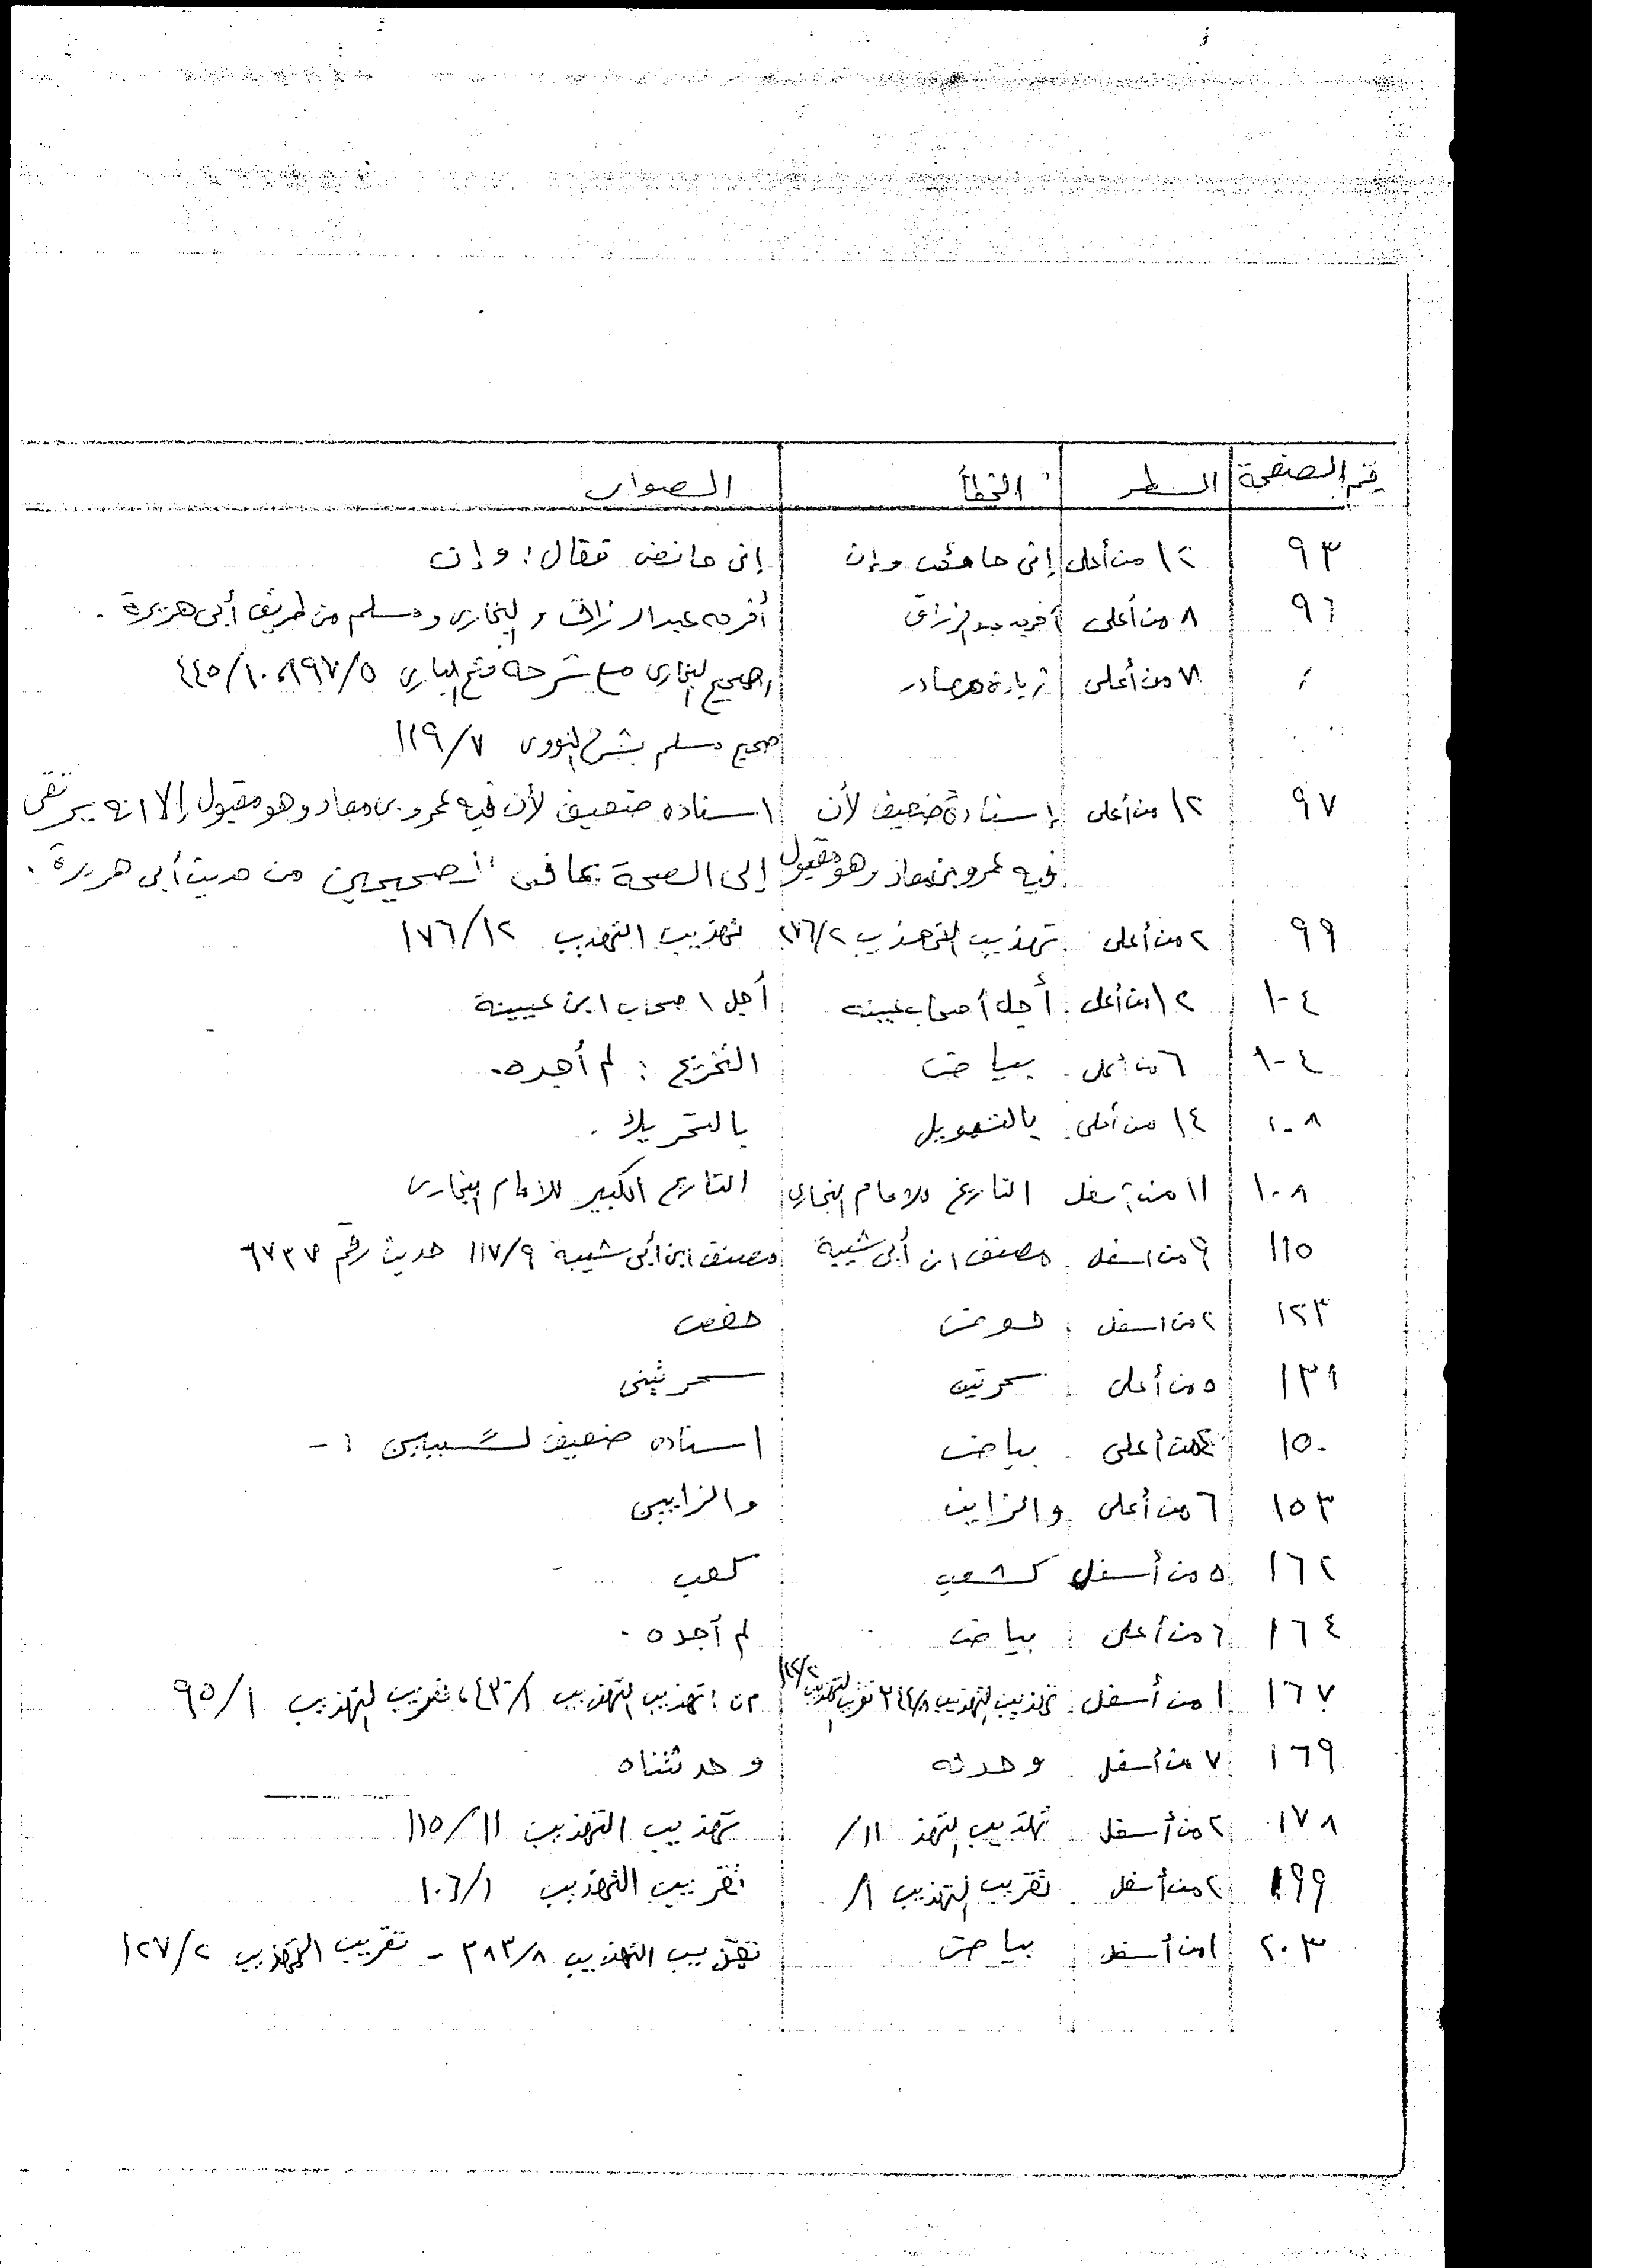 رقم الصفحة السطر الخطأ الصواب
٩٣ ١٢ من أعلى إنى حائض وإن إنى حائض فقال: وإن
٩٦ ٨ من أعلى أخرجه عبد الرزاق أخرجه عبد الرزاق والبخارى ومسلم من طريق أبى هريرة.
٧ من أعلى زيادة مصادر صحيح البخارى مع شرحه فتح البارى ١٩٧/٥، ٤٤٥/١٠
صحيح مسلم بشرح النووى ١١٩/٧
٩٧ ١٢ من أعلى إسناده ضعيف لأن اسناده ضعيف لأن فيه عمرو بن معاذ وهو مقبول إلا انه يرتقى
فيه عمرو بن معاذ وهو مقبول إلى الصحة بما فى الصحيحين من حديث أبى هريرة.
٩٩ ٢ من أعلى تهذيب التهذيب ١٧٦/٢ تهذيب التهذيب ١٧٦/١٢
١٠٤ ١٢ من أعلى أجل أصحاب عيينه أجل اصحاب ابن عيينة
١٠٤ ٦ من أعلى بياض التخريج: لم أجده.
١٠٨ ١٤ من أعلى بالتحويل بالتحريك.
١٠٨ ١١ من أسفل التاريخ للامام البخارى التاريخ الكبير للامام البخارى
١١٥ ٩ من اسفل مصنف ابن أبى شيبة مصنف ابن أبى شيبة ١١٧/٩ حديث رقم ٦٧٣٧
١٢٣ ٢ من اسفل حفص
١٣١ ٥ من أعلى
١٥٠ من أعلى بياض اسناده ضعيف لسببين :-
١٥٣ ٦ من أعلى والزايف والزابيين
١٦٢ ٥ من أسفل كشعب كعب
١٦٤ ٦ من أعلى بياض لم أجده.
١٦٧ ١ من أسفل تهذيب التهذيب ٣٤٤/٨ تقريب التهذيب ١٢٢/٢ تهذيب التهذيب ٤٣٠/١، تقريب التهذيب ٩٥/١
١٦٩ ٧ من أسفل وحدثه وحدثناه
١٧٨ ٢ من أسفل تهذيب التهذ ١١/ تهذيب التهذيب ١١٥/١١
١٩٩ ٢ من أسفل تقريب التهذيب ١/ تقريب التهذيب ١٠٦/١
٢٠٣ ١ من أسفل بياض تهذيب التهذيب ٣٨٣/٨ - تقريب التهذيب ١٢٧/٢